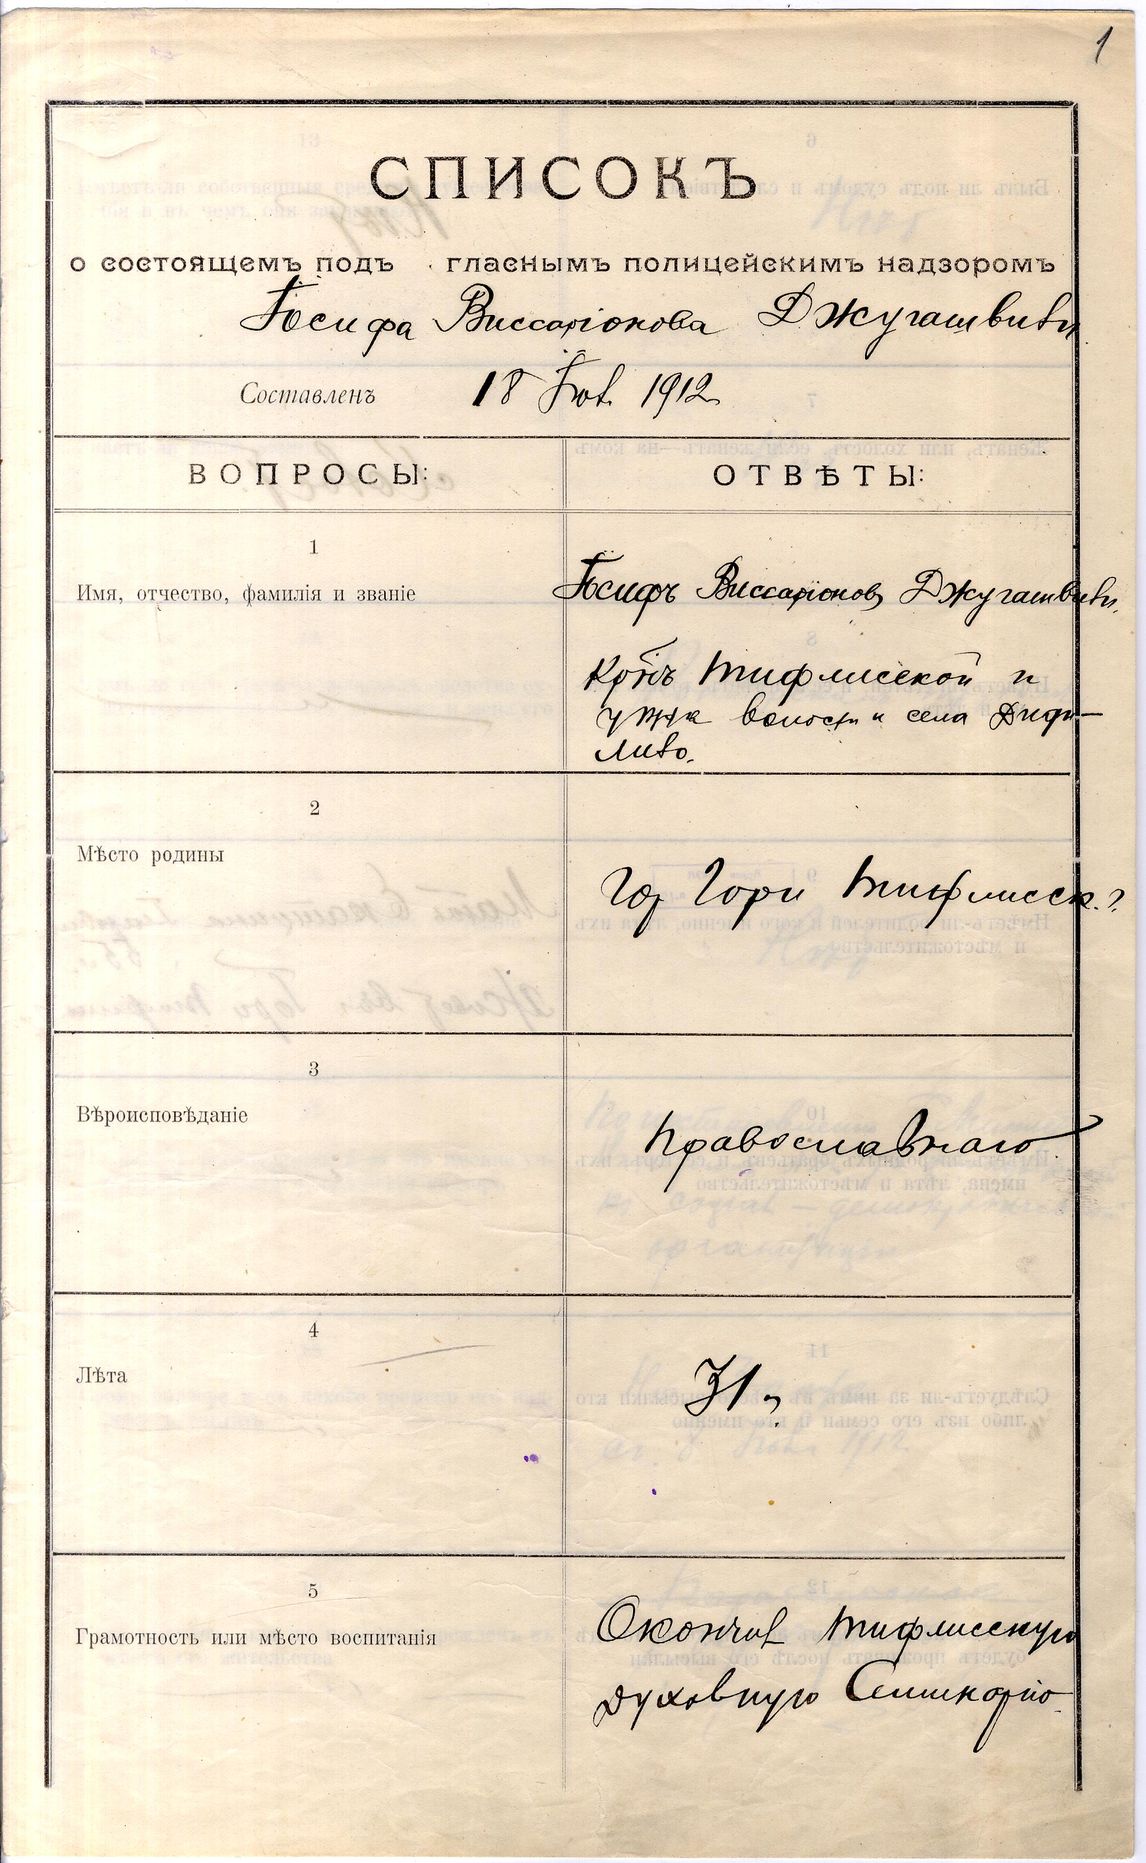 1
СПИСОКЪ
о состоящемъ подъ гласнымъ полицейскимъ надзоромъ
Іосифа Виссаріонова Джугашвили
Составленъ 18 1912
ВОПРОСЫ: ОТВѢТЫ:
1
Имя, отчество, фамилія и званіе
Іосифъ Виссаріоновъ Джугашвили.
Тифлисской и
волости и села Диди-
Лило.
2
Мѣсто родины
гор Гори Тифлисск. г.
3
Вѣроисповѣданіе
Православнаго
4
Лѣта
31 г.
5
Грамотность или мѣсто воспитанія
Окончил Тифлисскую
духовную Семинарію